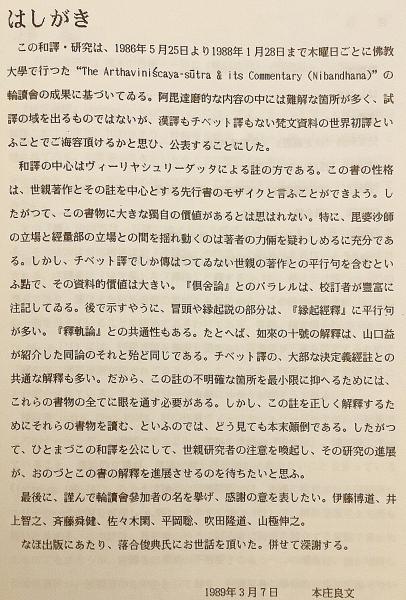 はしがき
この和譯・研究は、1986年5月25日より1988年1月28日まで木曜日ごとに佛教
大學で行つた “The Arthaviniścaya-sūtra & its Commentary (Nibandhana)” の
輪讀會の成果に基づいてゐる。阿毘達磨的な内容の中には難解な箇所が多く、試
譯の域を出るものではないが、漢譯もチベット譯もない梵文資料の世界初譯とい
ふことでご海容頂けるかと思ひ、公表することにした。
和譯の中心はヴィーリヤシュリーダッタによる註の方である。この書の性格
は、世親著作とその註を中心とする先行書のモザイクと言ふことができよう。し
たがつて、この書物に大きな獨自の價値があるとは思はれない。特に、毘婆沙師
の立場と經量部の立場との間を揺れ動くのは著者の力倆を疑わしめるに充分であ
る。しかし、チベット譯でしか傳はつてゐない世親の著作との平行句を含むとい
ふ點で、その資料的價値は大きい。『倶舍論』とのパラレルは、校訂者が豐富に
注記してゐる。後で示すやうに、冒頭や縁起説の部分は、『縁起經釋』に平行句
が多い。『釋軌論』との共通性もある。たとへば、如來の十號の解釋は、山口益
が紹介した同論のそれと殆ど同じである。チベット譯の、大部な決定義經註との
共通な解釋も多い。だから、この註の不明確な箇所を最小限に抑へるためには、
これらの書物の全てに眼を通す必要がある。しかし、この註を正しく解釋するた
めにそれらの書物を讀む、といふのでは、どう見ても本末顛倒である。したがつ
て、ひとまづこの和譯を公にして、世親研究者の注意を喚起し、その研究の進展
が、おのづとこの書の解釋を進展させるのを待ちたいと思ふ。
最後に、謹んで輪讀會參加者の名を擧げ、感謝の意を表したい。伊藤博道、井
上智之、斉藤舜健、佐々木閑、平岡聡、吹田隆道、山極伸之。
なほ出版にあたり、落合俊典氏にお世話を頂いた。併せて深謝する。
1989年3月7日 本庄良文